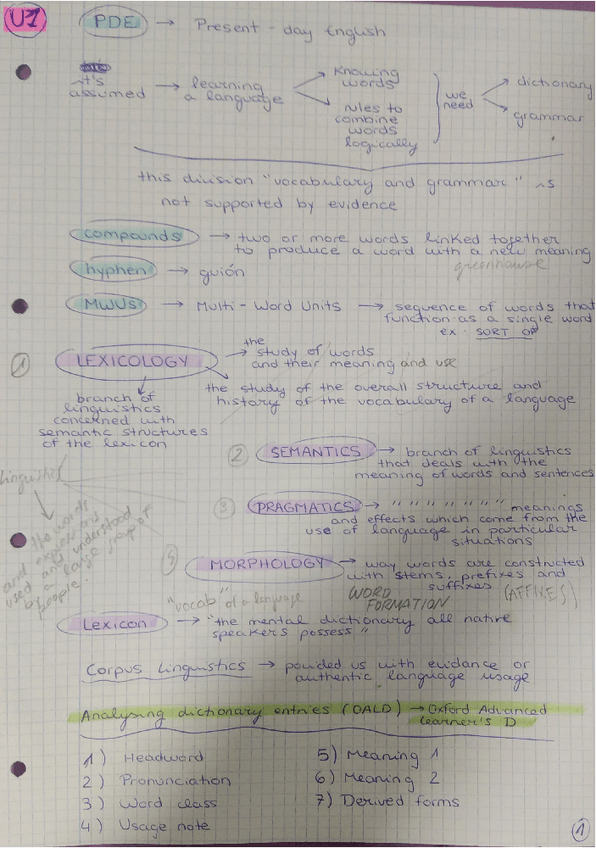 U1
PDE → Present-day English
it's assumed → learning a language
Knowing words
rules to combine words logically
we need
dictionary
grammar
this division "vocabulary and grammar" is
not supported by evidence
compounds → two or more words linked together
to produce a word with a new meaning
greenhouse
hyphen → guión
MWUs → Multi-Word Units → sequence of words that
function as a single word
ex: SORT OF
1
LEXICOLOGY → the study of words
and their meaning and use
the study of the overall structure and
history of the vocabulary of a language
branch of
linguistics
concerned with
semantic structures
of the lexicon
2 SEMANTICS → branch of linguistics
that deals with the
meaning of words and sentences
linguistics
the words
and expressions
used and understood
by a large group of
people.
3 PRAGMATICS → " " " " " " " meanings
and effects which come from the
use of language in particular
situations
MORPHOLOGY → way words are constructed
with stems, prefixes and
suffixes (AFFIXES)
WORD
FORMATION
"vocab" of a language
Lexicon → "the mental dictionary all native
speakers possess"
Corpus Linguistics → povided us with evidance or
authentic language usage
Analysing dictionary entries (OALD) → Oxford Advanced
Learner's D
1) Headword
2) Pronunciation
3) Word class
4) Usage note
5) Meaning 1
6) Meaning 2
7) Derived forms
1